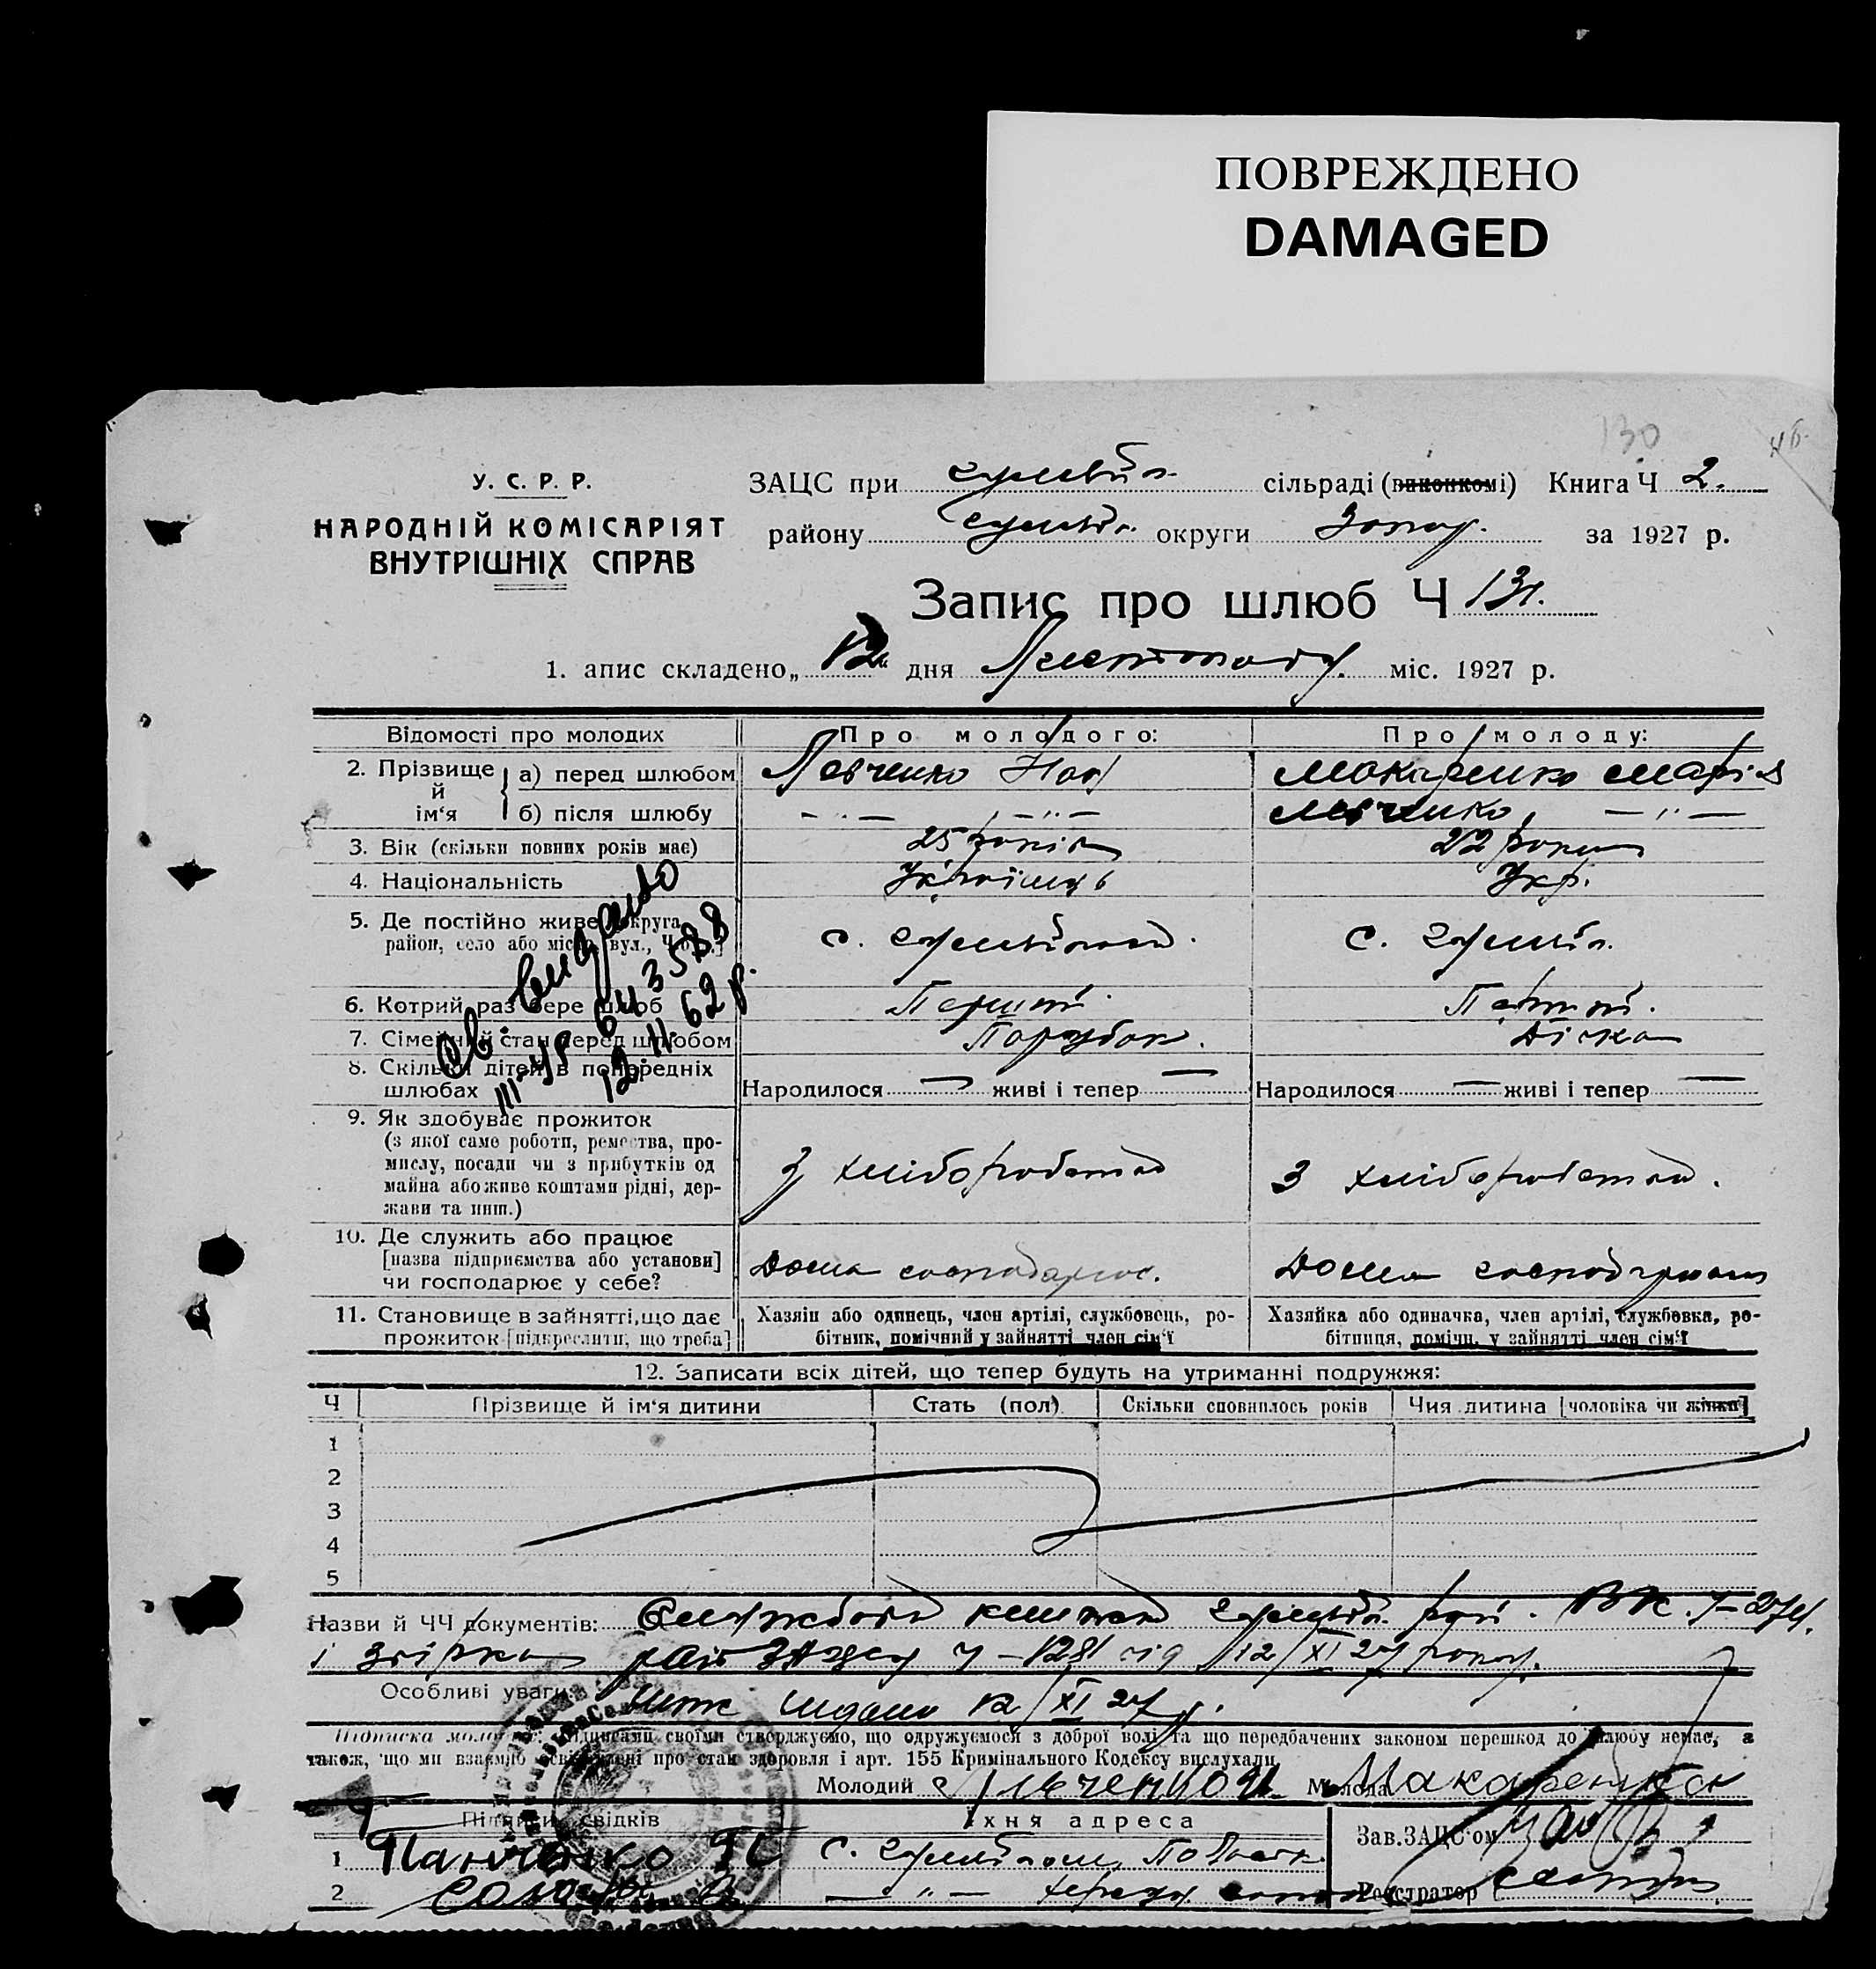 ПОВРЕЖДЕНО
DAMAGED
130
У. С. Р. Р.
НАРОДНІЙ КОМІСАРІЯТ
ВНУТРІШНІХ СПРАВ
ЗАЦС при сільраді (виконкомі) Книга Ч 2.
району округи Запор. за 1927 р.
Запис про шлюб Ч 131.
1. апис складено „12“ дня Листопаду. міс. 1927 р.
Відомості про молодих Про молодого: Про молоду:
2. Прізвище й ім‘я а) перед шлюбом Левченко Макаренко Марія
б) після шлюбу – „ – , – „ – Левченко, – „ –
3. Вік (скільки повних років має) 25 років 22 роки
4. Національність Українець Укр.
5. Де постійно живе округа, район, село або місто, вул., Ч с. с.
6. Котрий раз бере шлюб Перший. Перший.
7. Сімейний стан перед шлюбом Парубок. Дівка
8. Скільки дітей в попередніх шлюбах Народилося — живі і тепер — Народилося — живі і тепер —
9. Як здобуває прожиток (з якої саме роботи, ремества, промислу, посади чи з прибутків од майна або живе коштами рідні, держави та инш.) З хліборобства З хліборобства.
10. Де служить або працює [назва підприємства або установи] чи господарює у себе? Дома господарює. Дома господарює
11. Становище в зайнятті, що дає прожиток [підкреслити, що треба] Хазяїн або одинець, член артілі, службовець, робітник, помічний у зайнятті член сім‘ї Хазяйка або одиначка, член артілі, службовка, робітниця, помічн. у зайнятті член сім‘ї
св. видано
III-УР 643588
12.11.62 р.
12. Записати всіх дітей, що тепер будуть на утриманні подружжя:
Ч Прізвище й ім‘я дитини Стать (пол) Скільки сповнилось років Чия дитина [чоловіка чи жінки]
1
2
3
4
5
Назви й ЧЧ документів: рай.
і рай ЗАЦСу ч – 1281 від 12/XI 27 року.
Особливі уваги: видано 12/XI 27 р.
Підписка молодих: Підписами своїми стверджуємо, що одружуємося з доброї волі та що передбачених законом перешкод до шлюбу немає, а
також, що ми взаємно освідомлені про стан здоровля і арт. 155 Кримінального Кодексу вислухали
Молодий Левченко Молода Макаренко
Підписи свідків Їхня адреса Зав. ЗАЦС‘ом
1 Панченко с.
2 – „ – Реєстратор